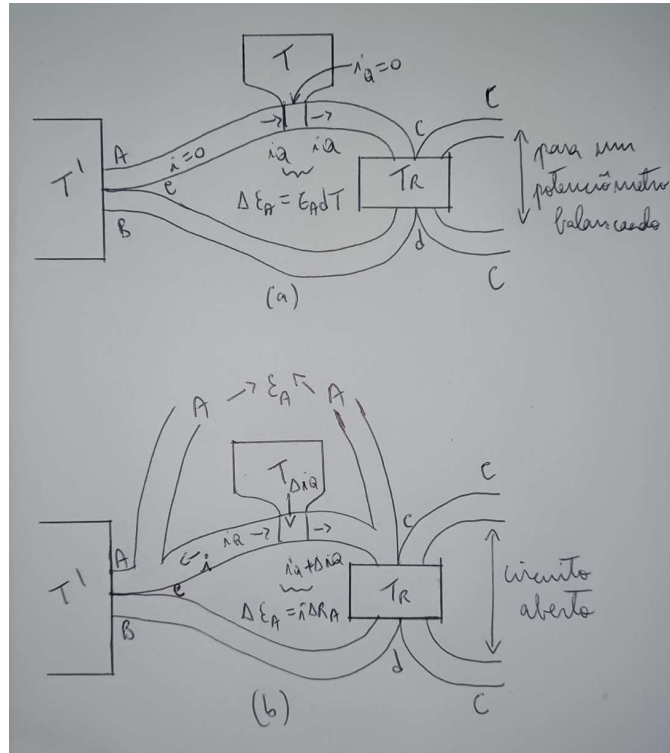 T
i_Q=0
T'
A
i=0
e
B
i_Q i_Q
Δε_A = ε_A dT
c
C
T_R
d
C
para um
potenciômetro
balanceado
(a)
A → ε_A ← A
T
Δi_Q
T'
A
i
i_Q →
e
B
i_Q+Δi_Q
Δε_A = iΔR_A
c
C
T_R
d
C
circuito
aberto
(b)